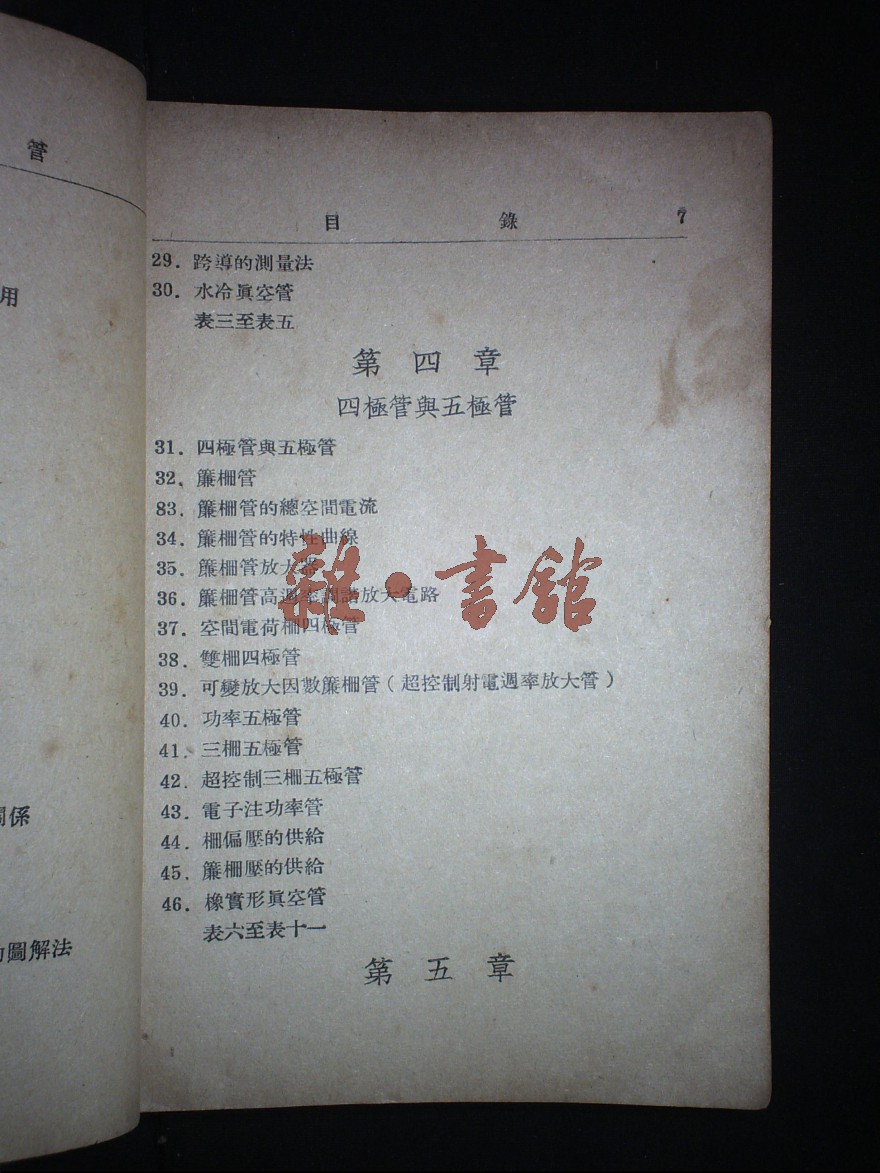 管
用
係
圖解法
目 錄 7
29. 跨導的測量法
30. 水冷眞空管
表三至表五
第四章
四極管與五極管
31. 四極管與五極管
32. 簾柵管
83. 簾柵管的總空間電流
34. 簾柵管的特性曲線
35. 簾柵管放大器
36. 簾柵管高週率調諧放大電路
37. 空間電荷柵四極管
38. 雙柵四極管
39. 可變放大因數簾柵管(超控制射電週率放大管)
40. 功率五極管
41. 三柵五極管
42. 超控制三柵五極管
43. 電子注功率管
44. 柵偏壓的供給
45. 簾柵壓的供給
46. 橡實形眞空管
表六至表十一
第五章
雜·書館